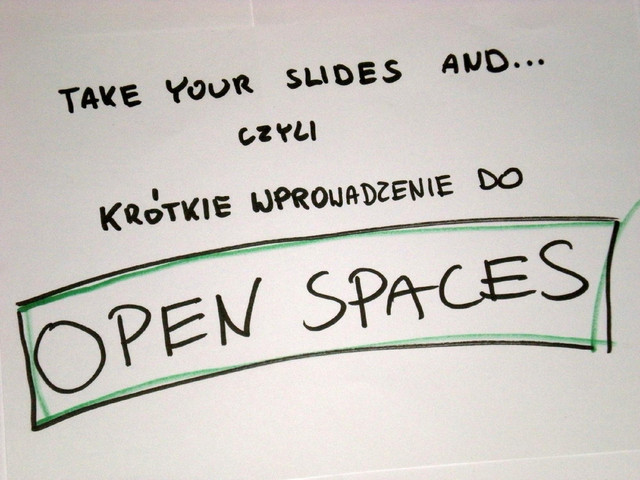 TAKE YOUR SLIDES AND...
CZYLI
KRÓTKIE WPROWADZENIE DO
OPEN SPACES